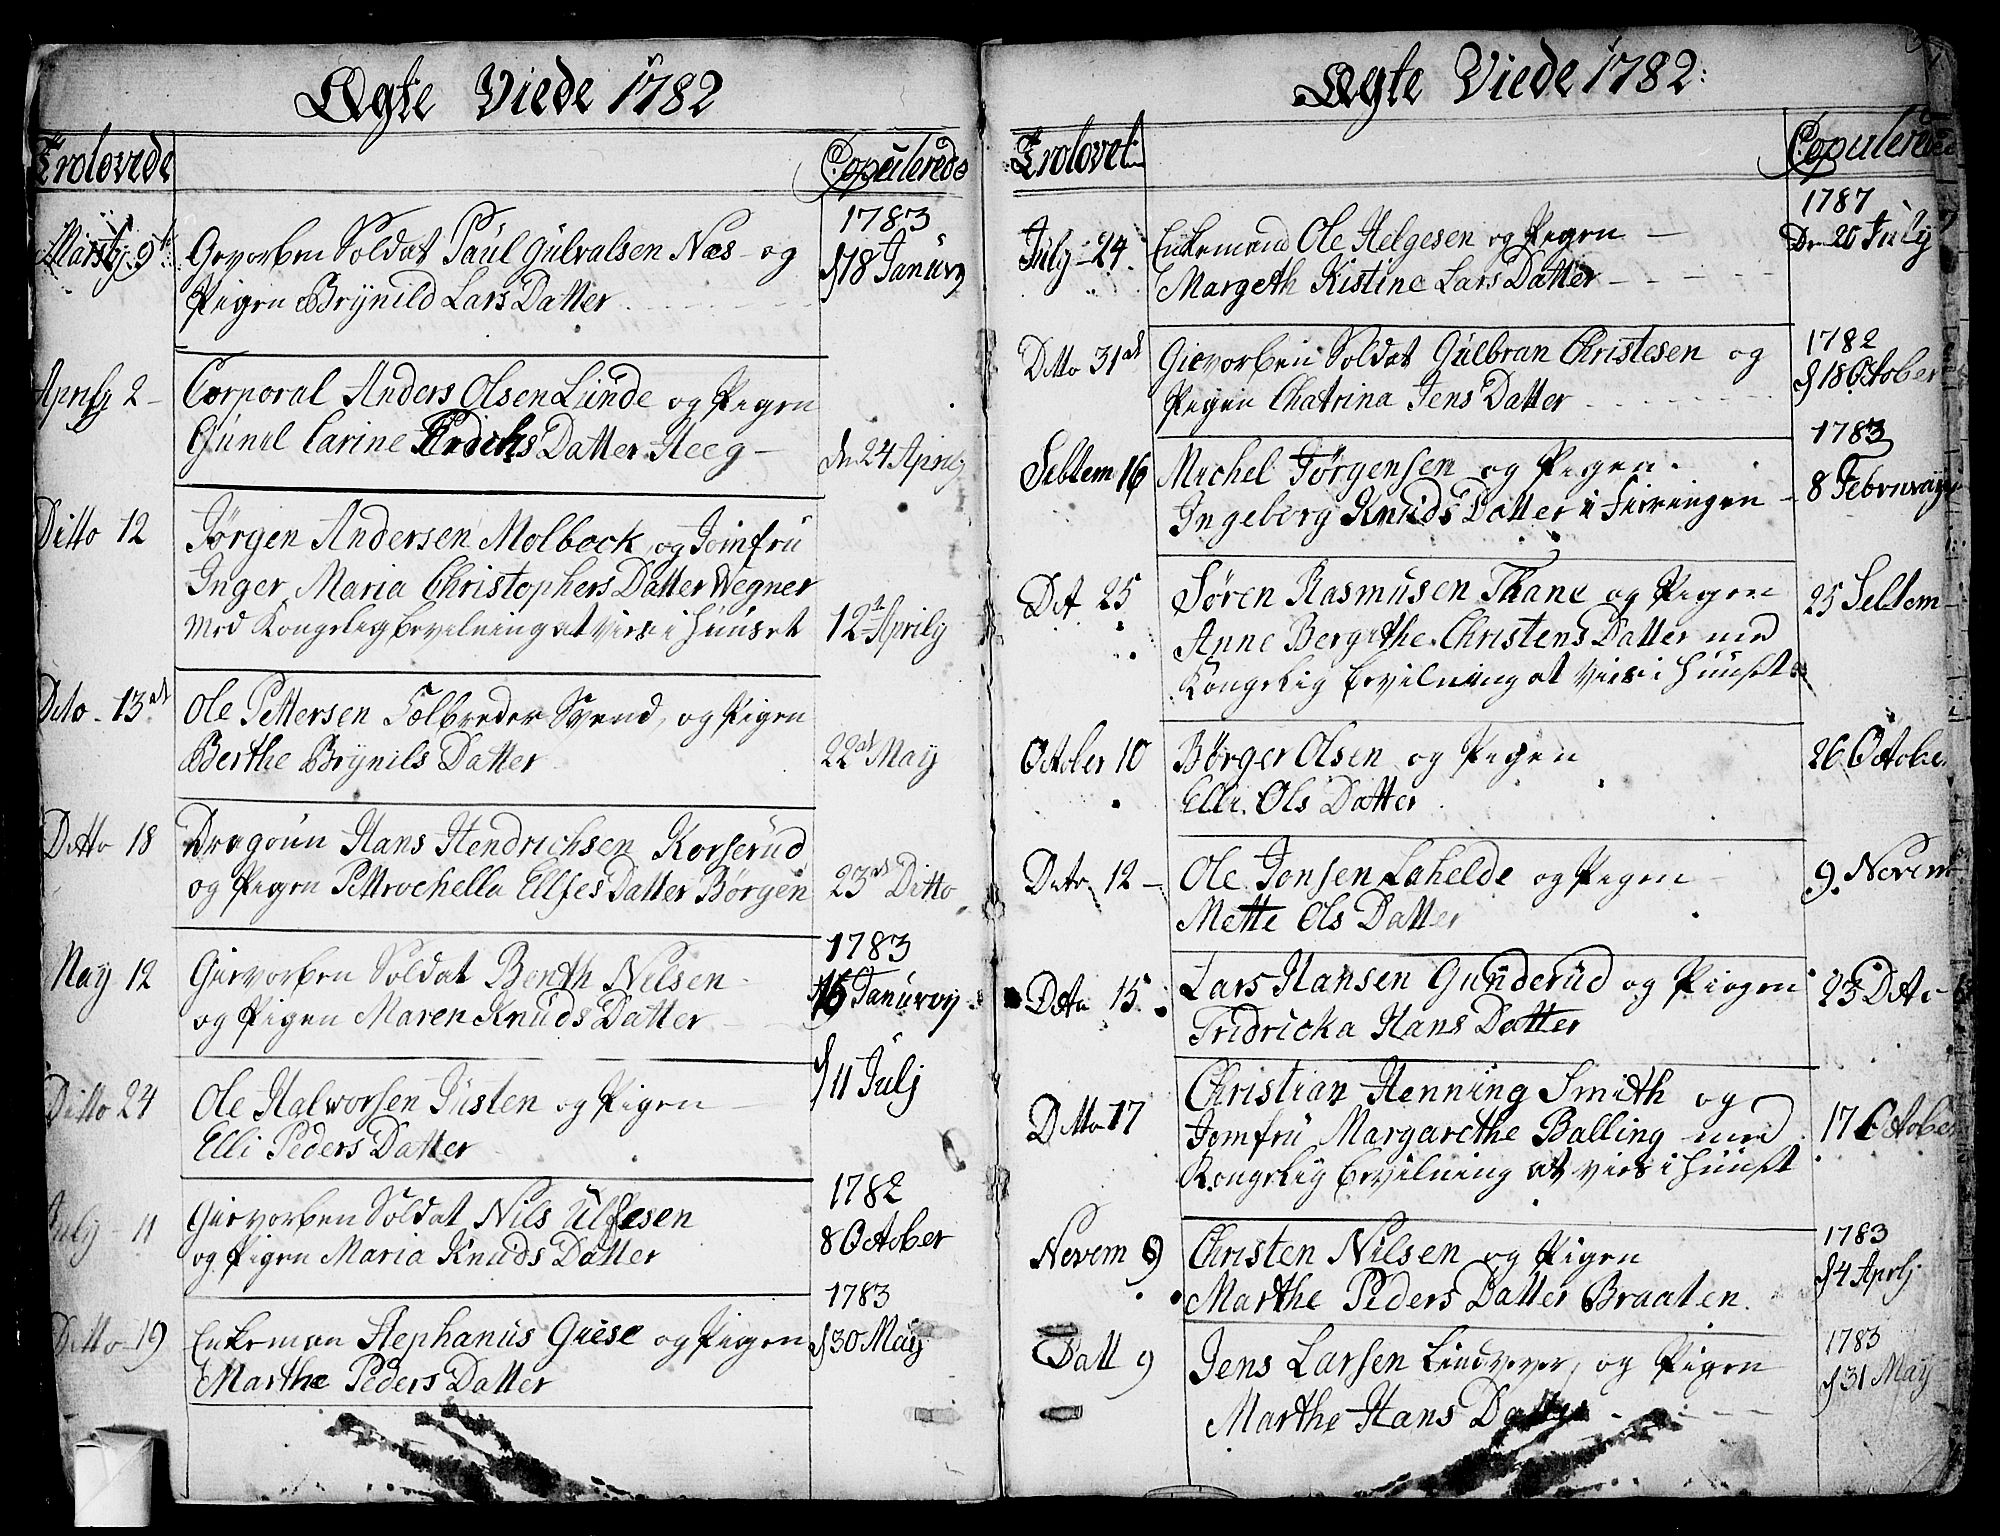 Ægte Viede 1782
Trolovede
Copulerede
Marsty 9de
Gevorben Soldat Paul Gulvalsen Næs og
Pigen Brynild Lars Datter
1783
d 18 Janury
Aprily 2
Corporal Anders Olsen Lunde og Pigen
Gunil Carine Datter Heeg
den 24 Aprily
Ditto 12
Jørgen Andersen Molbock og Jomfru
Inger Maria Christophers Datter Wegner
med Kongelig bevilning at vies i Huuset
12te Aprily
Dito 13de
Ole Pettersen Svend, og Pigen
Berthe Brynils Datter
22de May
Ditto 18
Dragoun Hans Hendrichsen Korserud
og Pigen Pettrochella Ellfes Datter Børgen
23de Ditto
May 12
Gievorben Soldat Benth Nilsen
og Pigen Maren Knuds Datter
1783
16 Janurvy
Ditto 24
Ole Halworsen Justen og Pigen
Elli Peders Datter
d 11 Julj
July 11
Gievorben Soldat Nils Ulfesen
og Pigen Maria Knuds Datter
1782
8 October
Ditto 19
Enkeman Stephanus Giese og Pigen
Marthe Peders Datter
1783
d 30 May
Ægte Viede 1782:
Trolovet
Copulerede
July 24
Enkemand Ole Helgesen og Pigen
Margeth Kistine Lars Datter
1787
Den 20 July
Ditto 31de
Gievorben Soldat Gulbran Christesen og
Pigen Chatrina Jens Datter
1782
d 18 October
Sebtem 16
Michel Jørgensen og Pigen
Ingeborg Knuds Datter i Fierringen
1783
8 Februvary
Det 25
Søren Rasmusen Thane og Pigen
Anne Bergithe Christens Datter med
Kongelig bevilning at vies i Huuset
25 Sebtem
Octoler 10
Børger Olsen og Pigen
Elli Ols Datter
26 October
Deto 12
Ole Jonsen Lahelde og Pigen
Mette Ols Datter
9 Novem
Deto 15
Lars Hansen Gunderud og Piegen
Fridricka Hans Datter
23 Deto
Ditto 17
Christian Henning Smith og
Jomfru Margarethe Balling med
Kongelig bevilning at vies i Huuset
17 October
Novem 9
Christen Nilsen og Pigen
Marthe Peders Datter Braaten
1783
d 4 Aprlj
Datt 9
Jens Larsen Lindvever, og Pigen
Marthe Hans Datter
1783
d 31 May